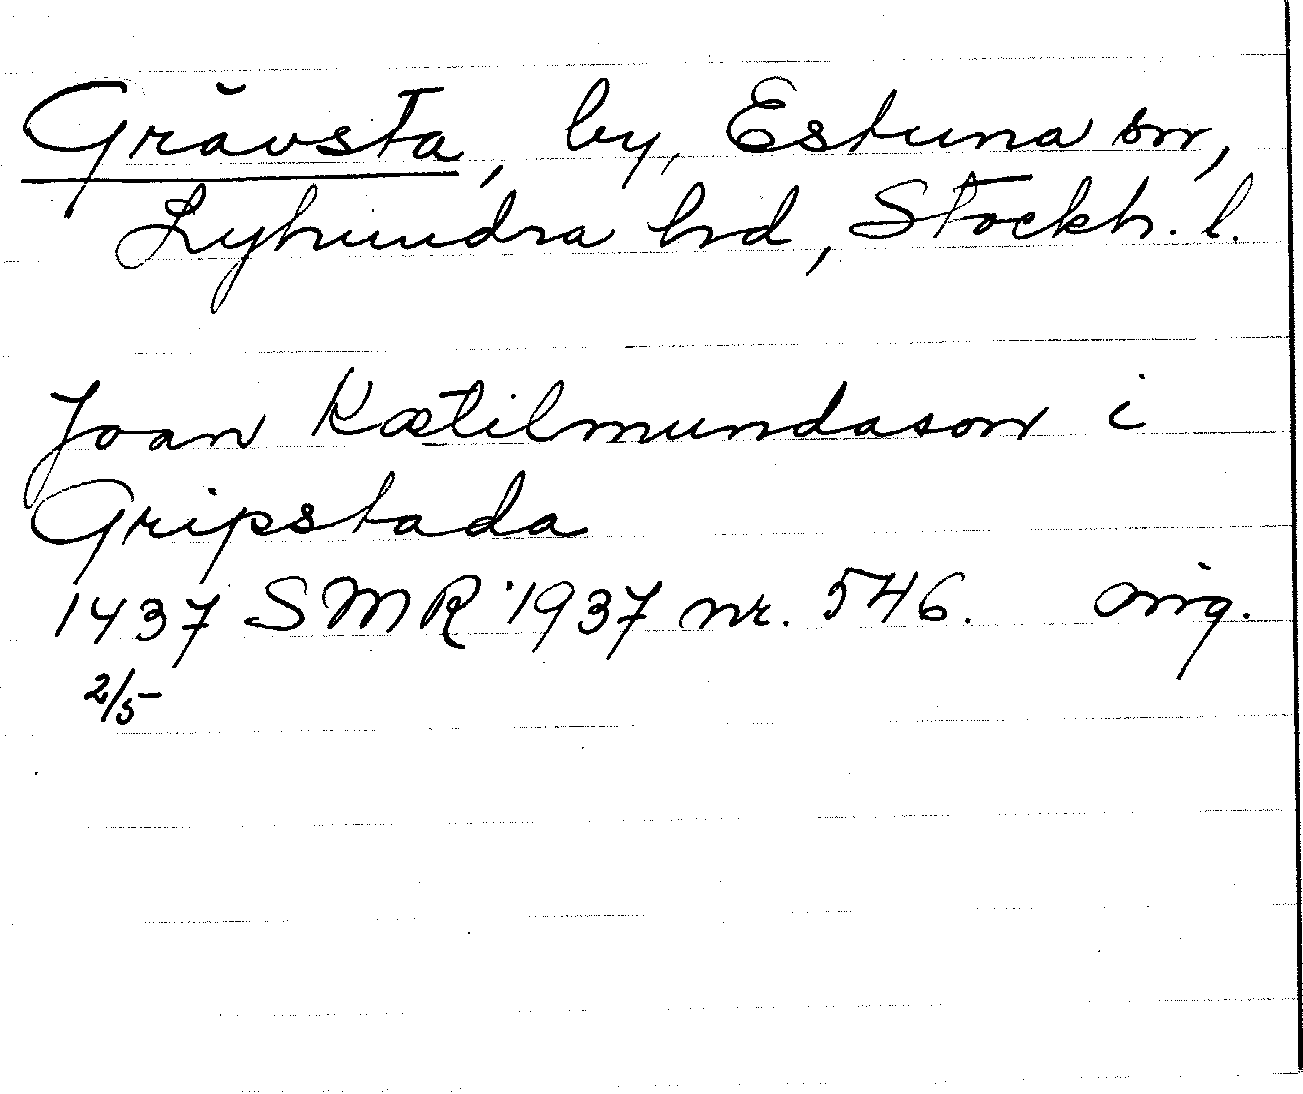 Grävsta, by, Estuna sn,
Lyhundra hd, Stockh. l.
Joan Kætilmundason i
Gripstada
1437 SMR 1937 nr. 546. orig.
2/5